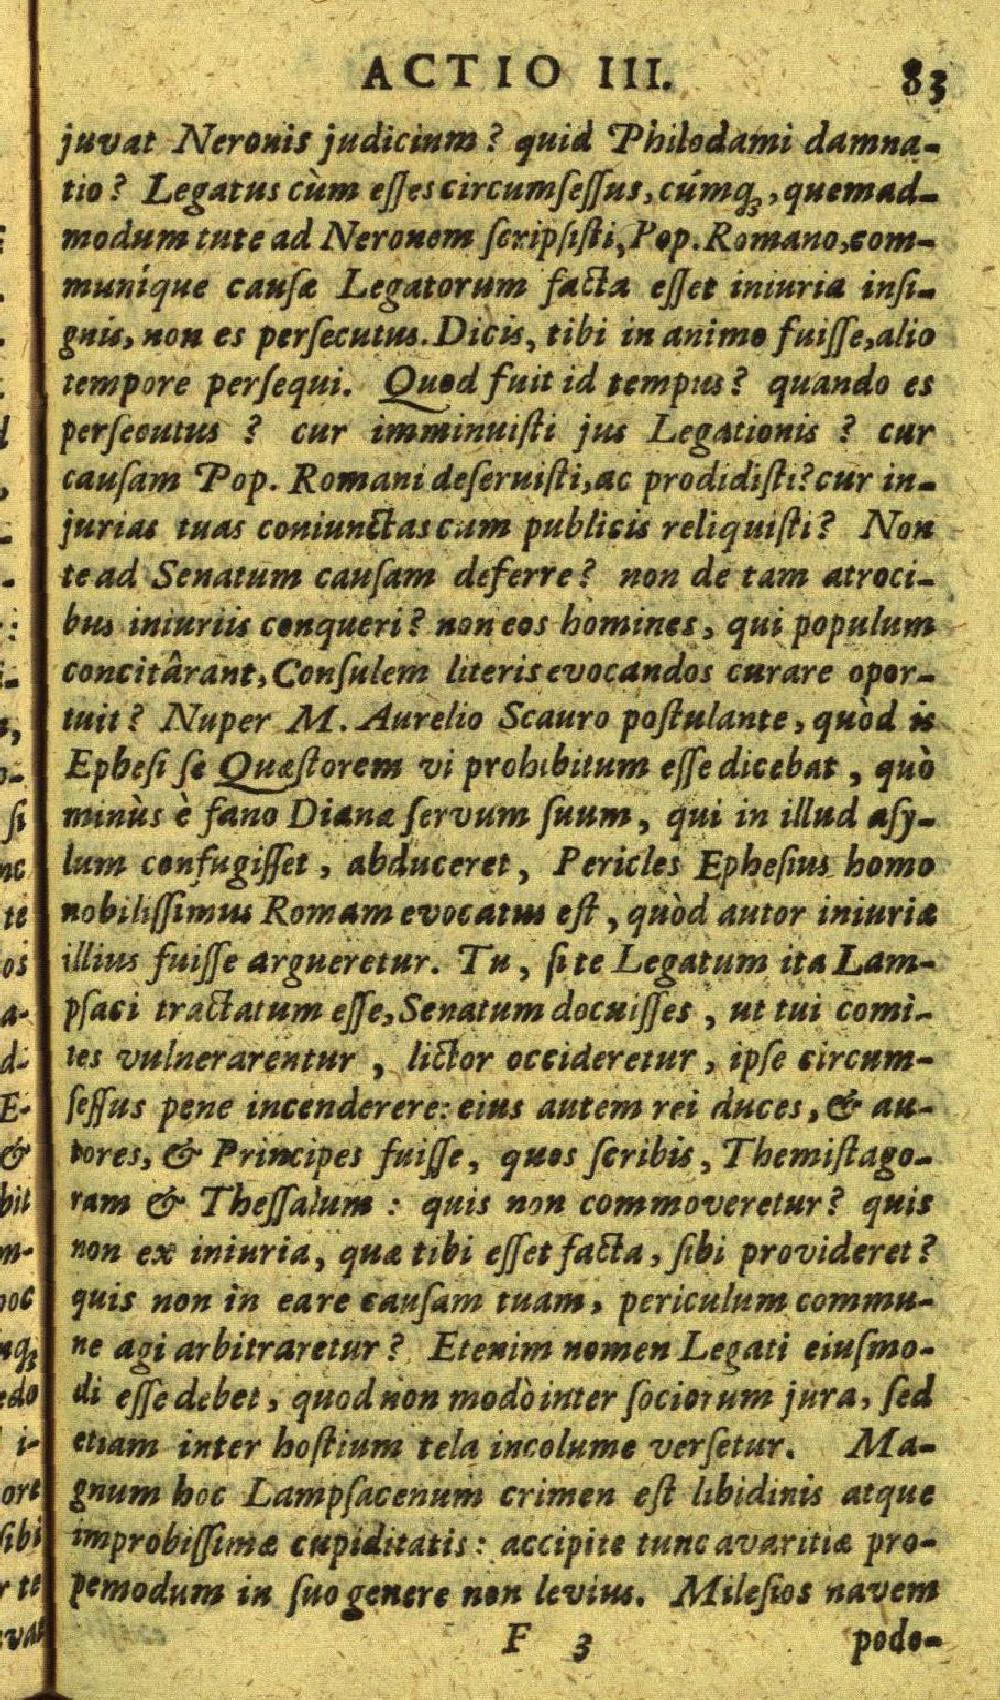 ACTIO III. 83
juvat Neronis judicium? quid Philodami damna-
tio? Legatus cùm esses circumsessus, cúmq;, quemad-
modum tute ad Neronem scripsisti, Pop. Romano, com-
muníque causæ Legatorum facta esset iniuria insi-
gnis, non es persecutus. Dicis, tibi in animo fuisse, alio
tempore persequi. Quod fuit id tempus? quando es
persecutus ? cur imminuisti jus Legationis ? cur
causam Pop. Romani deseruisti, ac prodidisti? cur in-
jurias tuas coniunctas cum publicis reliquisti? Non
te ad Senatum causam deferre? non de tam atroci-
bus iniuriis conqueri? non eos homines, qui populum
concitârant, Consulem literis evocandos curare opor-
tuit? Nuper M. Aurelio Scauro postulante, quòd is
Ephesi se Quæstorem vi prohibitum esse dicebat, quò
minùs è fano Dianæ servum suum, qui in illud asy-
lum confugisset, abduceret, Pericles Ephesius homo
nobilissimus Romam evocatus est, quòd autor iniuriæ
illius fuisse argueretur. Tu, si te Legatum ita Lam-
psaci tractatum esse, Senatum docuisses, ut tui comi-
tes vulnerarentur, lictor occideretur, ipse circum-
sessus pene incenderere: eius autem rei duces, & au-
tores, & Principes fuisse, quos scribis, Themistago-
ram & Thessalum : quis non commoveretur? quis
non ex iniuria, quæ tibi esset facta, sibi provideret?
quis non in eare causam tuam, periculum commu-
ne agi arbitraretur? Etenim nomen Legati eiusmo-
di esse debet, quod non modò inter sociorum jura, sed
etiam inter hostium tela incolume versetur. Ma-
gnum hoc Lampsacenum crimen est libidinis atque
improbissimæ cupiditatis: accipite tunc avaritiæ pro-
pemodum in suo genere non levius. Milesios navem
F 3 podo-